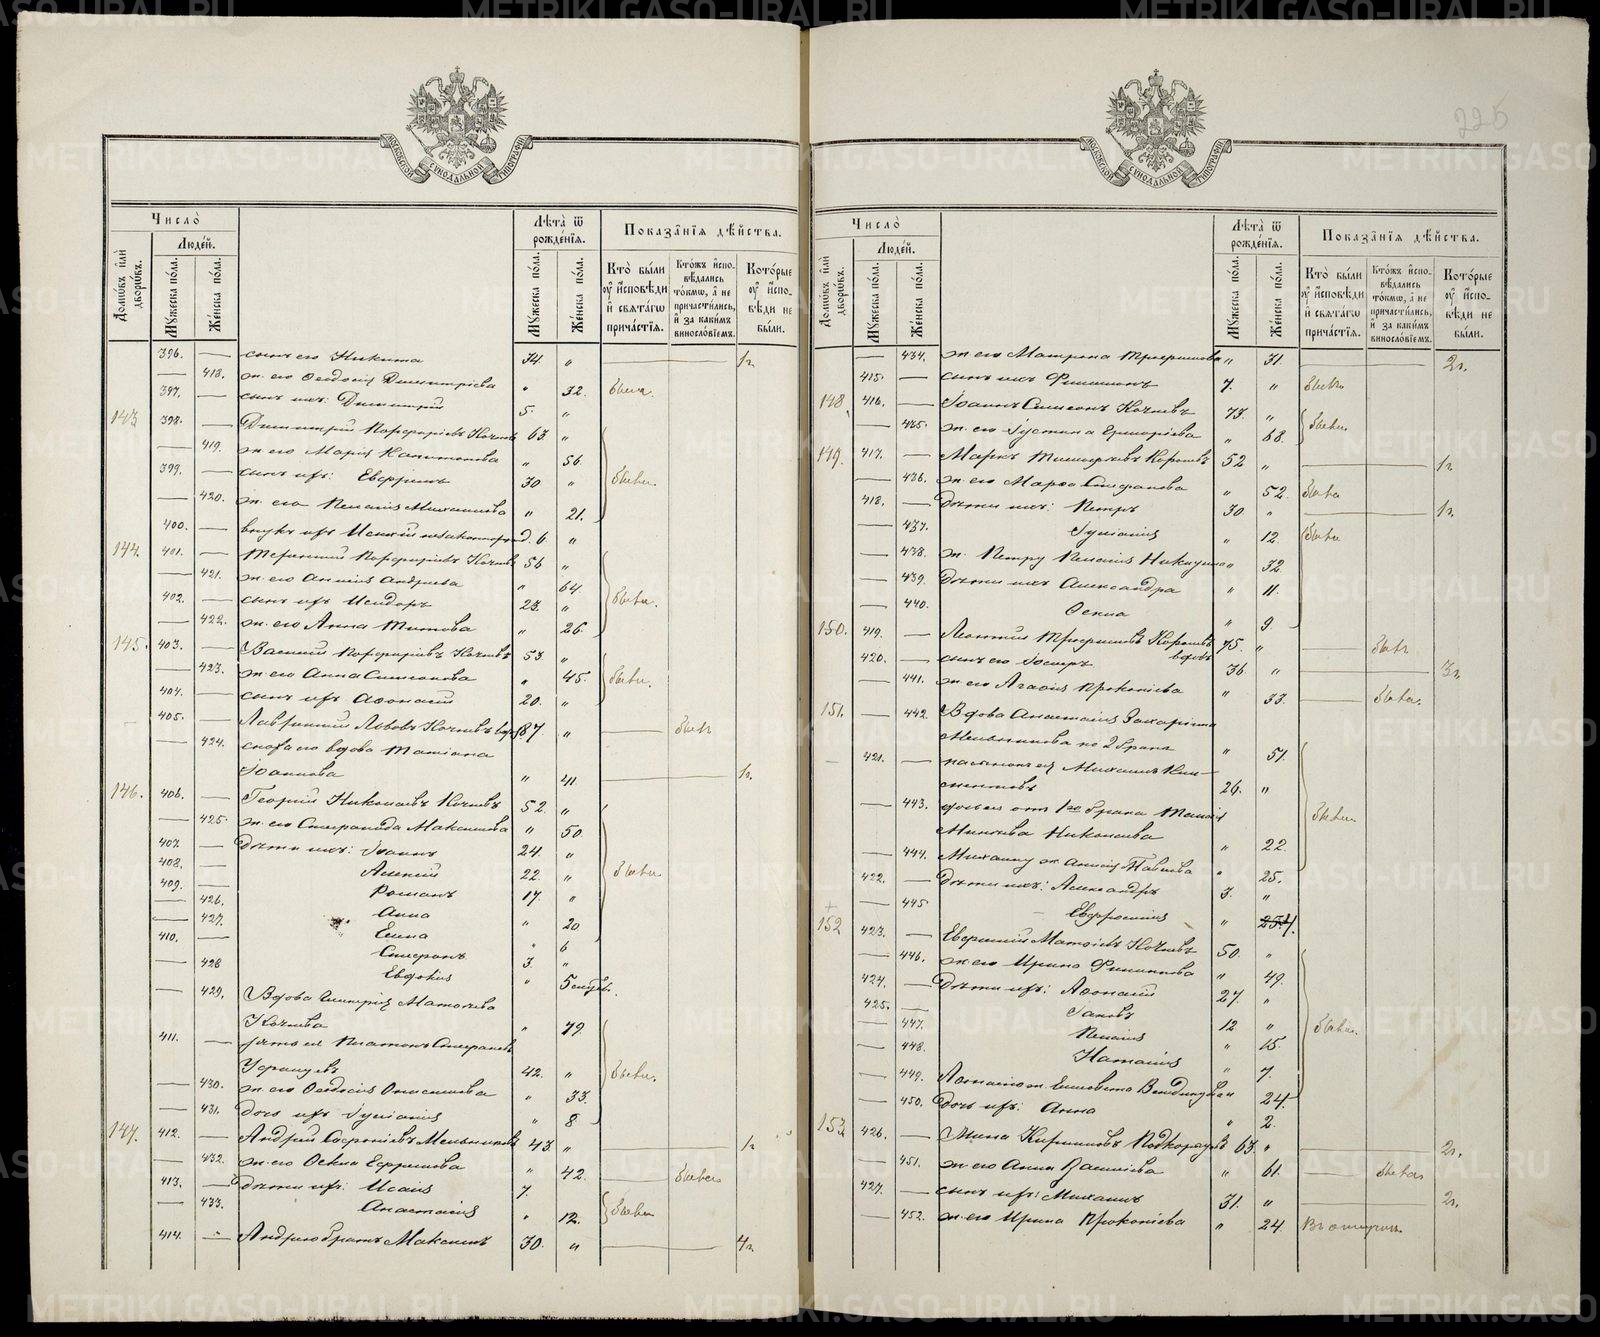 225
МОСКОВСКОЙ СѴНОДАЛЬНОЙ ТИПОГРАФІИ
Число̀
Людей.
Домѡвъ и҆лѝ дворѡвъ.
Мꙋжеска по́ла.
Же́нска по́ла.
Лѣта̀ ѿ рожде́нїѧ.
Мꙋжеска по́ла.
Же́нска по́ла.
Показа̂нїѧ дѣ́йства.
Кто̀ бы́ли ᲂу҆ и҆сповѣди и҆ свѧта́гѡ прича́стїѧ.
Кто́жъ и҆спо-вѣдались то́кмѡ, а҆ не причасти́лись, и҆ за каки́мъ винослові́емъ.
Кото́рые ᲂу҆ и҆спо-вѣди не бы́ли.
396. — сынъ его Никита 34. „ 1г.
— 418. ж. его Ѳеодосія Димитріева „ 32. была.
397. — сынъ ихъ: Димитрій 5. „
143 398. — Димитрій Порфиріевъ Кочневъ 63. „
— 419. ж. его Марія Капитонова „ 56.
399. — сынъ ихъ: Евфримъ 30 „ были.
— 420. ж. его Пелагія Михаилова „ 21.
400. — внукъ ихъ 6. „
144. 401. — Терентій Порфиріевъ Кочневъ 56 „
— 421. ж. его Анисія Андреева „ 64.
402. — сынъ ихъ Исидоръ 23. „ были.
— 422. ж. его Анна Титова „ 26.
145. 403. — Василій Порфиріевъ Кочневъ 53. „
— 423. ж. его Анна Симеонова „ 45. были.
404. — сынъ ихъ Аѳанасій 20. „
— 405. — Лаврентій Львовъ Кочневъ вдовъ 87 „ былъ
— 424. сноха его вдова Татіана
Іоаннова „ 41. 1г.
146. 406. — Георгій Николаевъ Кочневъ 52. „
— 425. ж. его Стефанида Максимова „ 50.
407. — Дѣти ихъ: Іоаннъ 24. „
408. — Алексій 22. „ были
409. — Романъ 17. „
— 426. Анна „ 20
— 427. Елена „ 6
410. — Стефанъ 3. „
— 428 Евдокія „ 5
— 429. Вдова Матѳеева
Кочнева „ 79.
411. — зять ея Платонъ Стефановъ
42. „ были.
— 430. ж. его Ѳеодосія „ 33.
— 431. дочь ихъ Іуліанія „ 8
147. 412. — Андрей Софроніевъ Мельниковъ 43. „ 1г.
— 432. ж. его Ѳекла Ефремова „ 42. была
413. — дѣти ихъ: Исаія 7. „ были
— 433. Анастасія „ 12.
414. — Андрею братъ Максимъ 30. „ 4г.
Число̀
Людей.
Домѡвъ и҆лѝ дворѡвъ.
Мꙋжеска по́ла.
Же́нска по́ла.
Лѣта̀ ѿ рожде́нїѧ.
Мꙋжеска по́ла.
Же́нска по́ла.
Показа̂нїѧ дѣ́йства.
Кто̀ бы́ли ᲂу҆ и҆сповѣди и҆ свѧта́гѡ прича́стїѧ.
Кто́жъ и҆спо-вѣдались то́кмѡ, а҆ не причасти́лись, и҆ за каки́мъ винослові́емъ.
Кото́рые ᲂу҆ и҆спо-вѣди не бы́ли.
— 434. ж. его Матрона Трефилова „ 31. 2г.
415. — сынъ ихъ Филимонъ 7. „ былъ
148. 416. — Іоаннъ Симеонъ Кочневъ 73. „ были
— 435. ж. его Іустина Григоріева „ 68.
149. 417. — Маркъ Тимоѳеевъ Коротаевъ 52 „ 1г.
— 436. ж. его Марѳа Стефанова „ 52. была
418. — дѣти ихъ: Петръ 30. „ 1г.
— 437. Іуліанія „ 12. были
— 438. ж. Петру Пелагія „ 32.
— 439. Дѣти ихъ Александра „ 11.
— 440. Ѳекла „ 9.
150. 419. — Леонтій Трефиловъ 75. „ былъ
вдовъ
420. — сынъ его 36. „ 3г.
— 441. ж. его Агаѳія Прокопіева „ 33. была.
151. — 442. Вдова Анастасія Захаріина
Мельникова по 2 бракѣ „ 51.
421. — пасынокъ ея Михаилъ Кли-
ментовъ 26. „
— 443. дочь ея отъ 1го брака
Николаева „ 22. были
— 444. Михаилу ж. Анисія Павлова „ 25.
422. — Дѣти ихъ: Александръ 3. „
— 445 Евфросинія „
152 423. — Евгеній Матѳіевъ Кочневъ 50. „
— 446. ж. его Ирина Филиппова „ 49.
424. — Дѣти ихъ: Аѳанасій 27. „
425. — Іаковъ 12 „
— 447. Пелагія „ 15. были.
— 448. Наталія „ 7.
— 449. Аѳанасію ж. Елисавета „ 24.
— 450. дочь ихъ: Анна „ 2.
153. 426. — Мина Кирилловъ Подкорытовъ 63. „ 2г.
— 451. ж. его Анна Василіева „ 61. была
427. — сынъ ихъ: Михаилъ 31. „ 2г.
— 452. ж. его Ирина Прокопіева „ 24.
METRIKI.GASO-URAL.RU